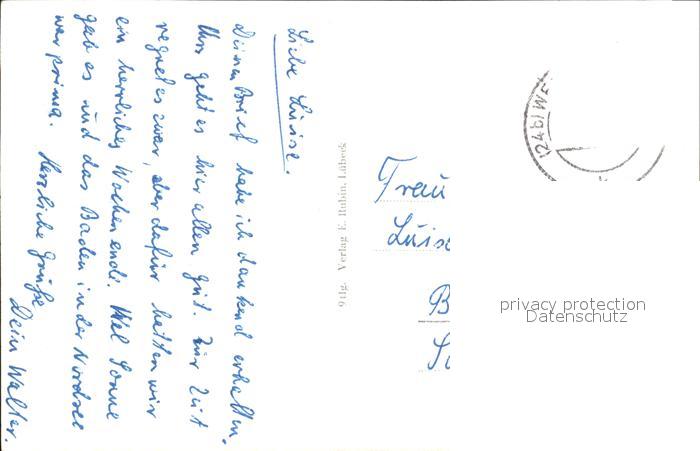 Liebe Luise.
Deinen Brief habe ich dankend erhalten.
Uns geht es hier allen gut. Zur Zeit
regnet es zwar, aber dafür hatten wir
ein herrliches Wochenende. Viel Sonne
gab es und das Baden in der Nordsee
war prima. Herzliche Grüße
Dein Walter.
941g. Verlag E. Rubin, Lübeck
Frau
Luise
B
privacy protection
Datenschutz